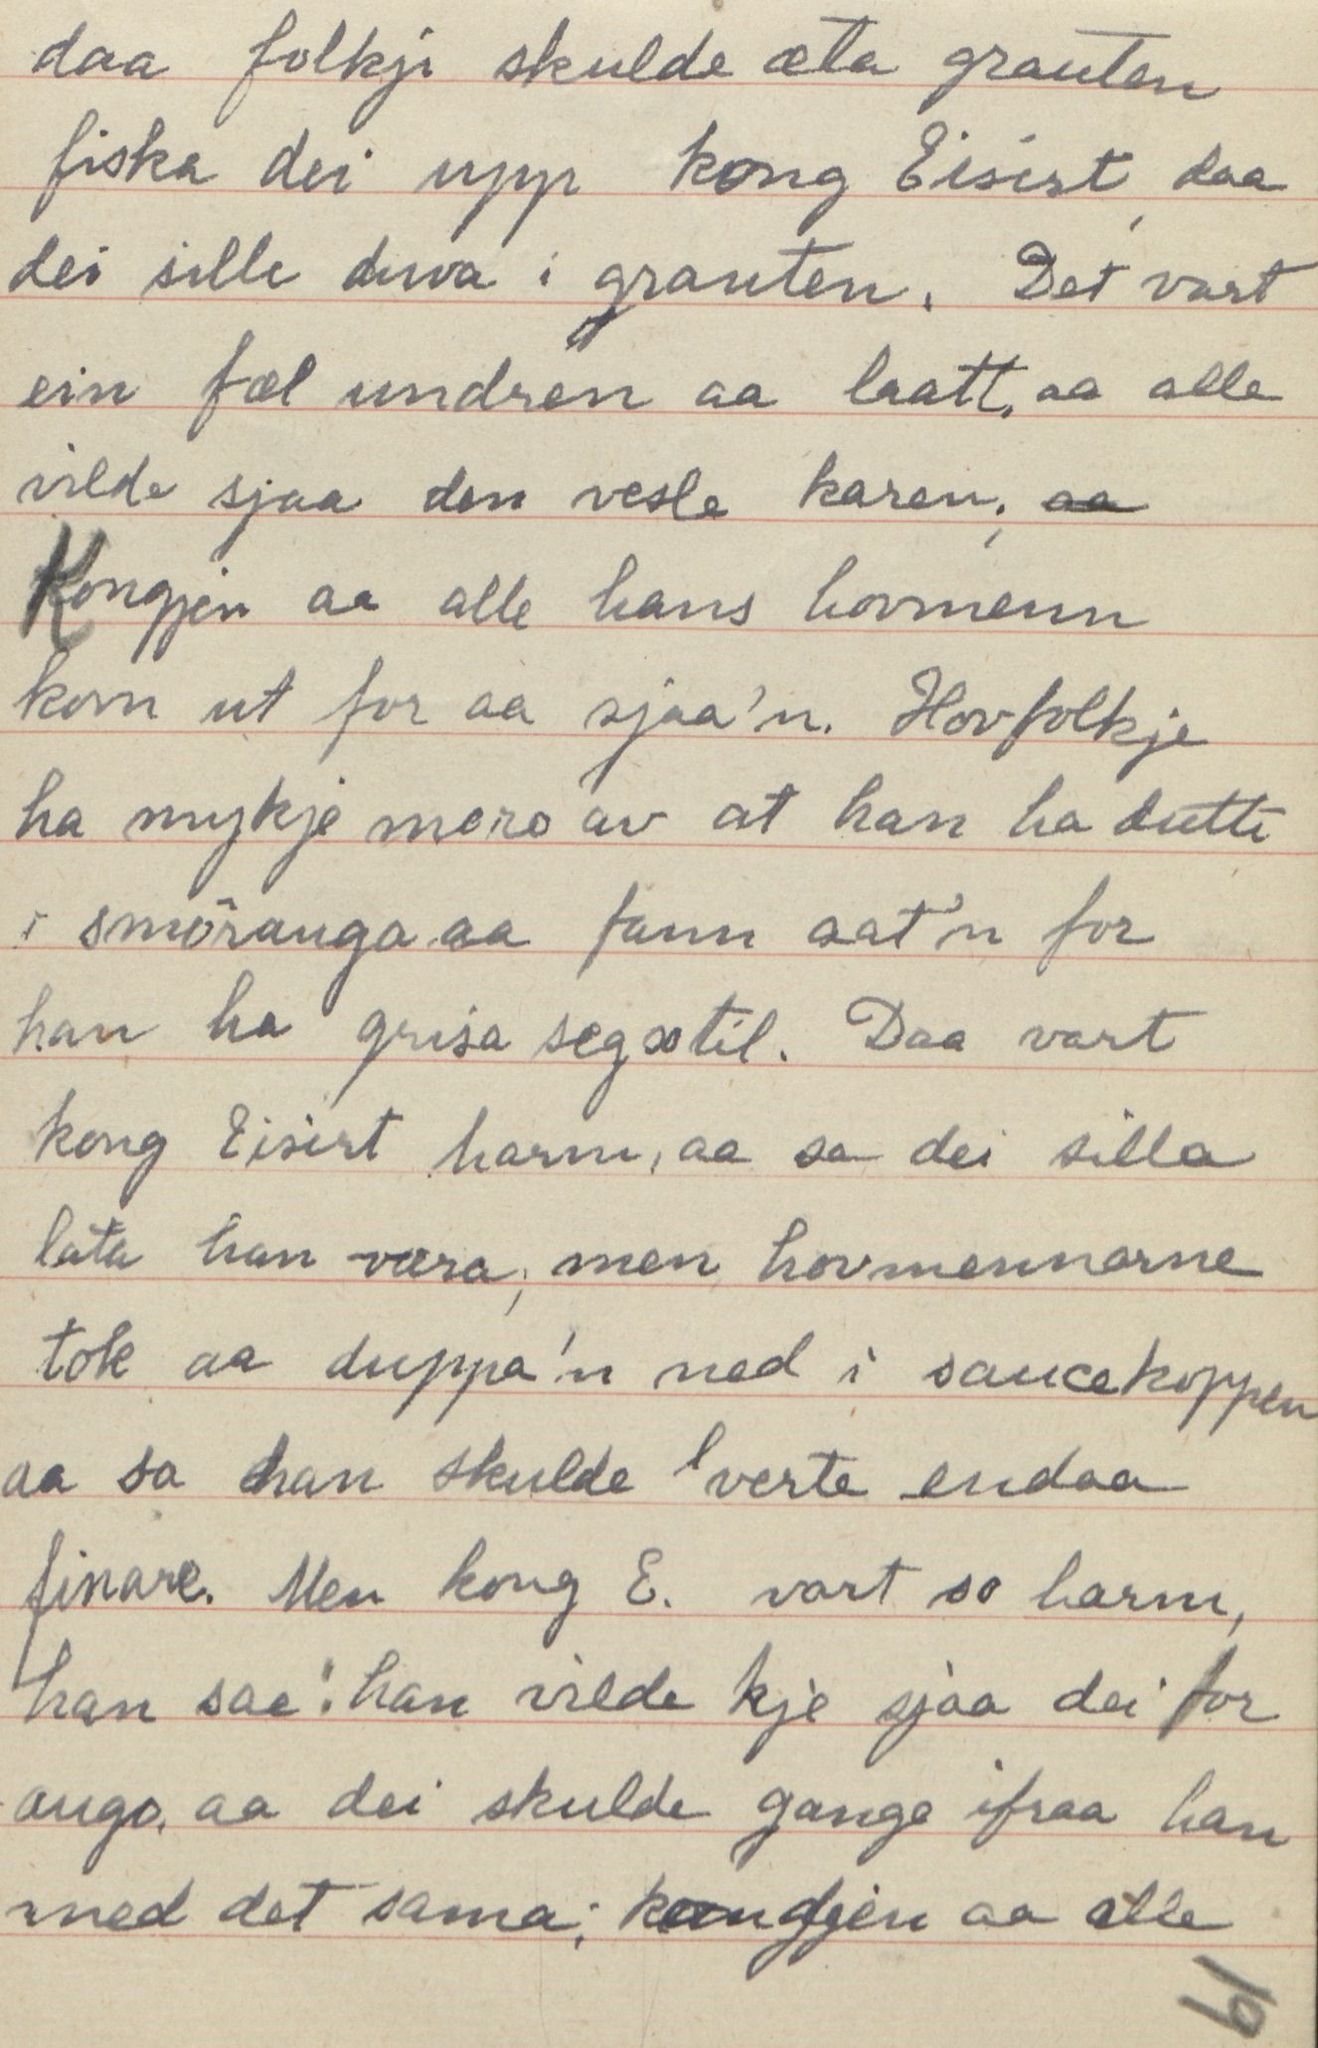 daa folkji skulde æta grauten
fiska dei upp kong Eisirt, daa
dei sille duva i grauten. Det vart
ein fæl undren aa laatt, aa alle
vilde sjaa den vesle karen; aa
Kongjen aa alle hans hovmenn
kom ut for aa sjaa'n. Hovfolkje
ha mykje moro av at han ha dutte
i smörauga aa fann aat'n for
han ha grisa seg til. Daa vart
kong Eisirt harm, aa sa dei silla
lata han væra, men hovmennarne
tok aa duppa'n ned i saucekoppen
aa sa han skulde verte endaa
finare. Men kong E. vart so harm,
han sae: han vilde kje sjaa dei for
augo, aa dei skulde gange ifraa han
med det sama; kongjen aa alle
19